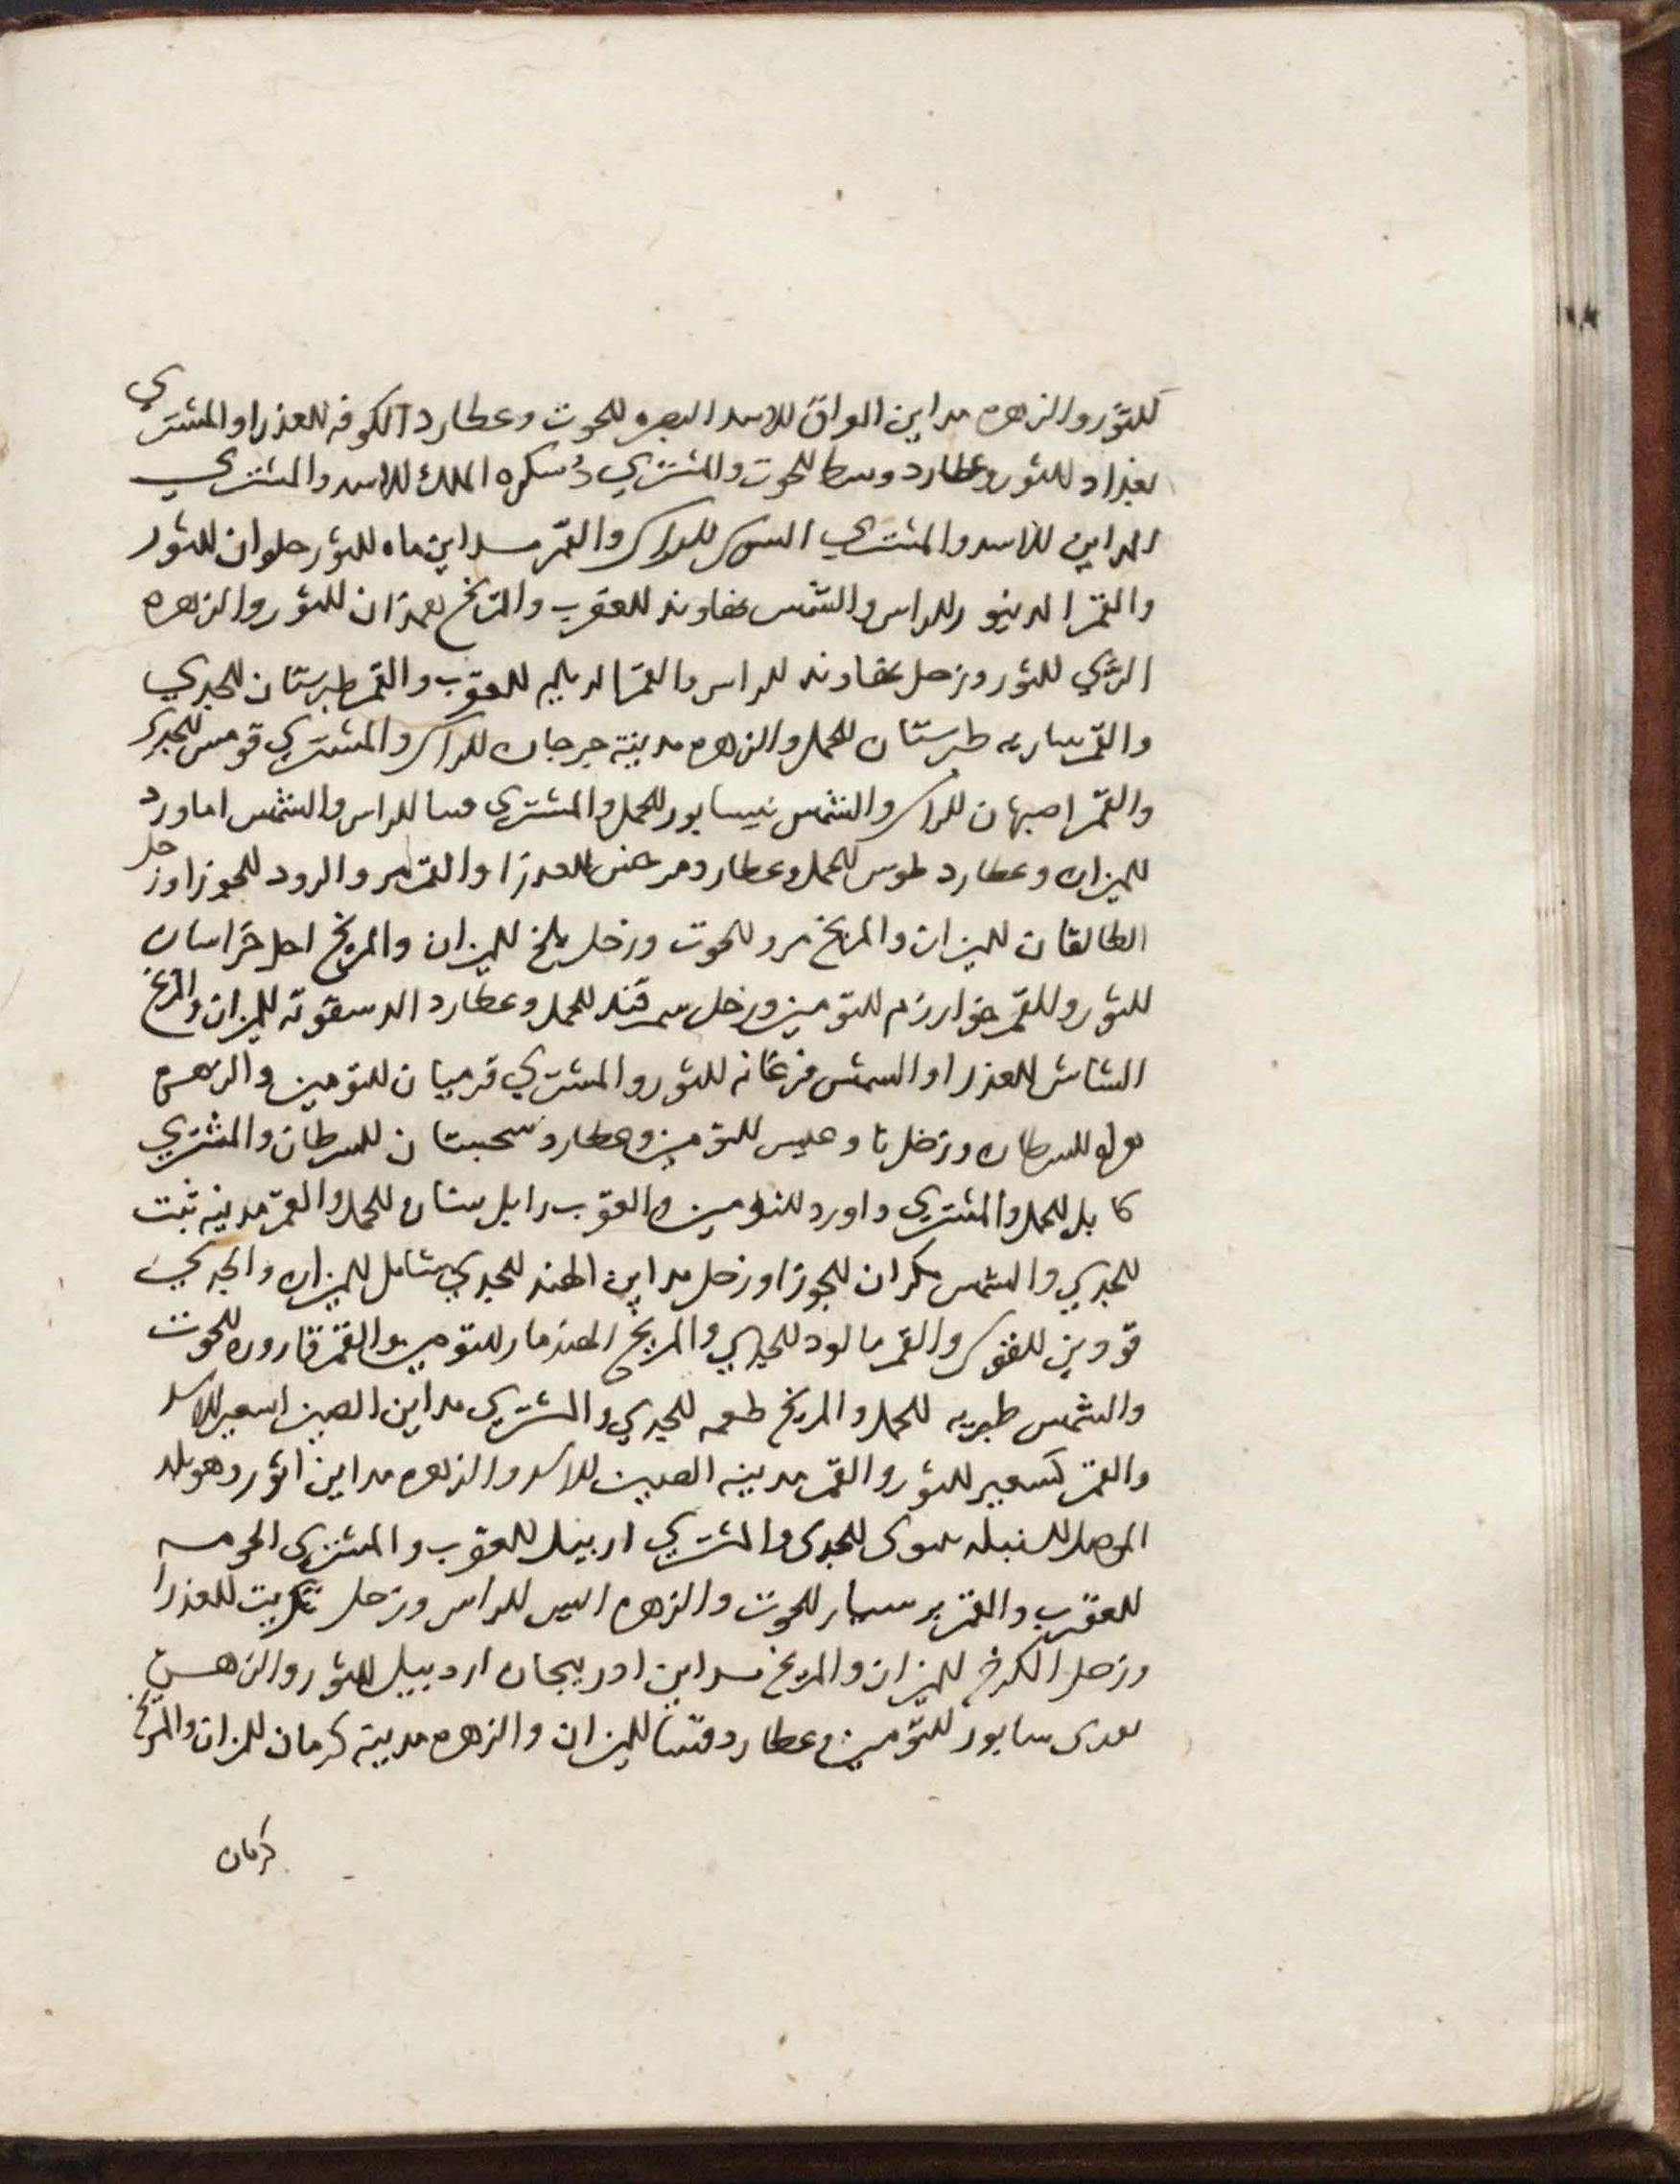 للثور والزهره مداين العراق للاسد البصره للحوت وعطارد الكوفه للعذرا والمشتري
بغداد للثور وعطارد وسط للحوت والمشتري دسكره الملك للاسد والمشتري
المداين للاسد والمشتري السوس للراس والقمر مداين ماه للثور حلوان للثور
والقمر الدينور للراس والشمس نهاوند للعقرب والمريخ همذان للثور والزهره
الري للثور وزحل نهاوند للراس والقمر الديلم للعقرب والقمر طبرستان للجدي
والقمر ساريه طبرستان للحمل والزهره مدينة جرجان للراس والمشتري قومس للجدي
والقمر اصبهان للراس والشمس نيسابور للحمل والمشتري نسا للراس والشمس اماورد
للميزان وعطارد طوس للحمل وعطارد سرخس للعذرا والقمر مرو الرود للجوزا وزحل
الطالقان للميزان والمريخ مرو للحوت وزحل بلخ للميزان والمريخ اهل خراسان
للثور وللقمر خوارزم للتومين وزحل سمرقند للحمل وعطارد الدسقوته للميزان والمريخ
الشاش للعذرا والشمس فرغانه للثور والمشتري قرميان للتومين والزهره
للسرطان وزحل للتومين وعطارد سجستان للسرطان والمشتري
كابل للحمل والمشتري داورد للتومين والعقرب زابلستان للحمل والقمر مدينه تبت
للجدي والشمس مكران للجوزا وزحل مداين الهند للجدي شامل للميزان والجدي
قزوين للقوس والقمر مالود للجدي والمريخ الهندمار للتومين والقمر قاروره للحوت
والشمس طبريه للحمل والمريخ طعمه للجدي والمشتري مداين الصين اسعير للاسد
والقمر كسعير للثور والقمر مدينه الصين للاسد والزهره مداين اثور وهو بلد
الموصل للسنبله نينوى للجدي والمشتري اربيل للعقرب والمشتري الحومه
للعقرب والقمر للحوت والزهره للراس وزحل تكريت للعذرا
وزحل الكرخ للميزان والمريخ مداين ادربيجان اردبيل للثور والزهره
سابور للتومين وعطارد للميزان والزهره مدينة كرمان للميزان والمريخ
كرمان